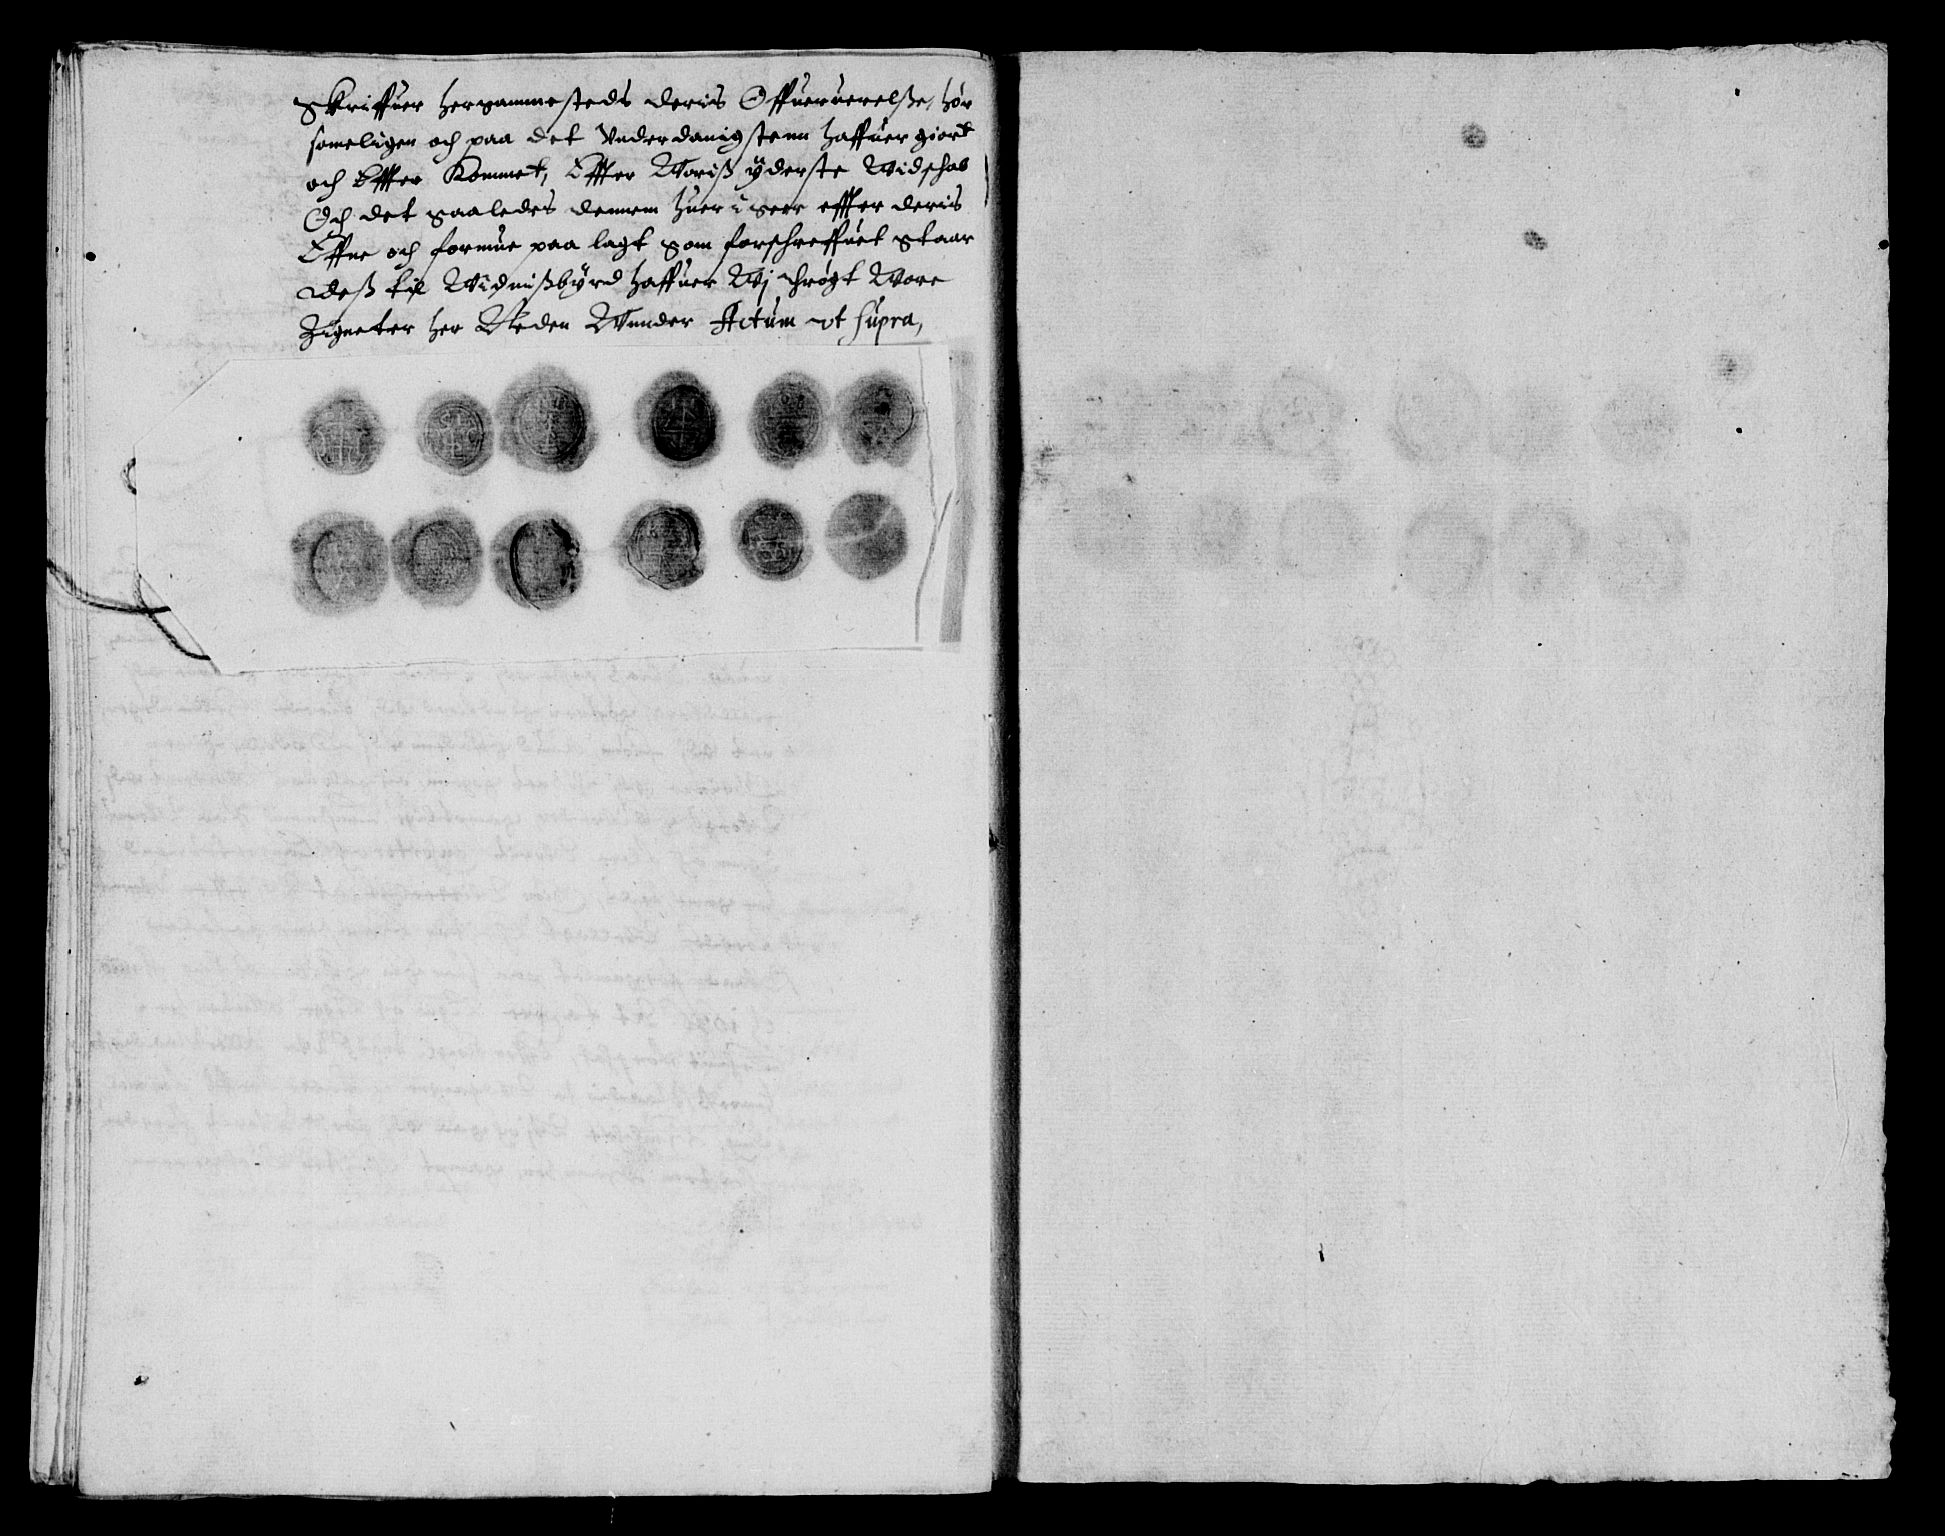 Skriffuer hersammesteds deris Offueruerelße, hør
someligen och paa det Vnderdanigstenn haffuer giort
och Effter Kommet, Effter Woriß ÿderste Widschab
Och det saaledes dennem huer i seer effter deris
Effne och formue paa lagt som forschreffuet staar
Deß til Widnißbÿrd haffuer Wj throgt Wore
Zigneter her Neden Wnnder Actum vt supra,